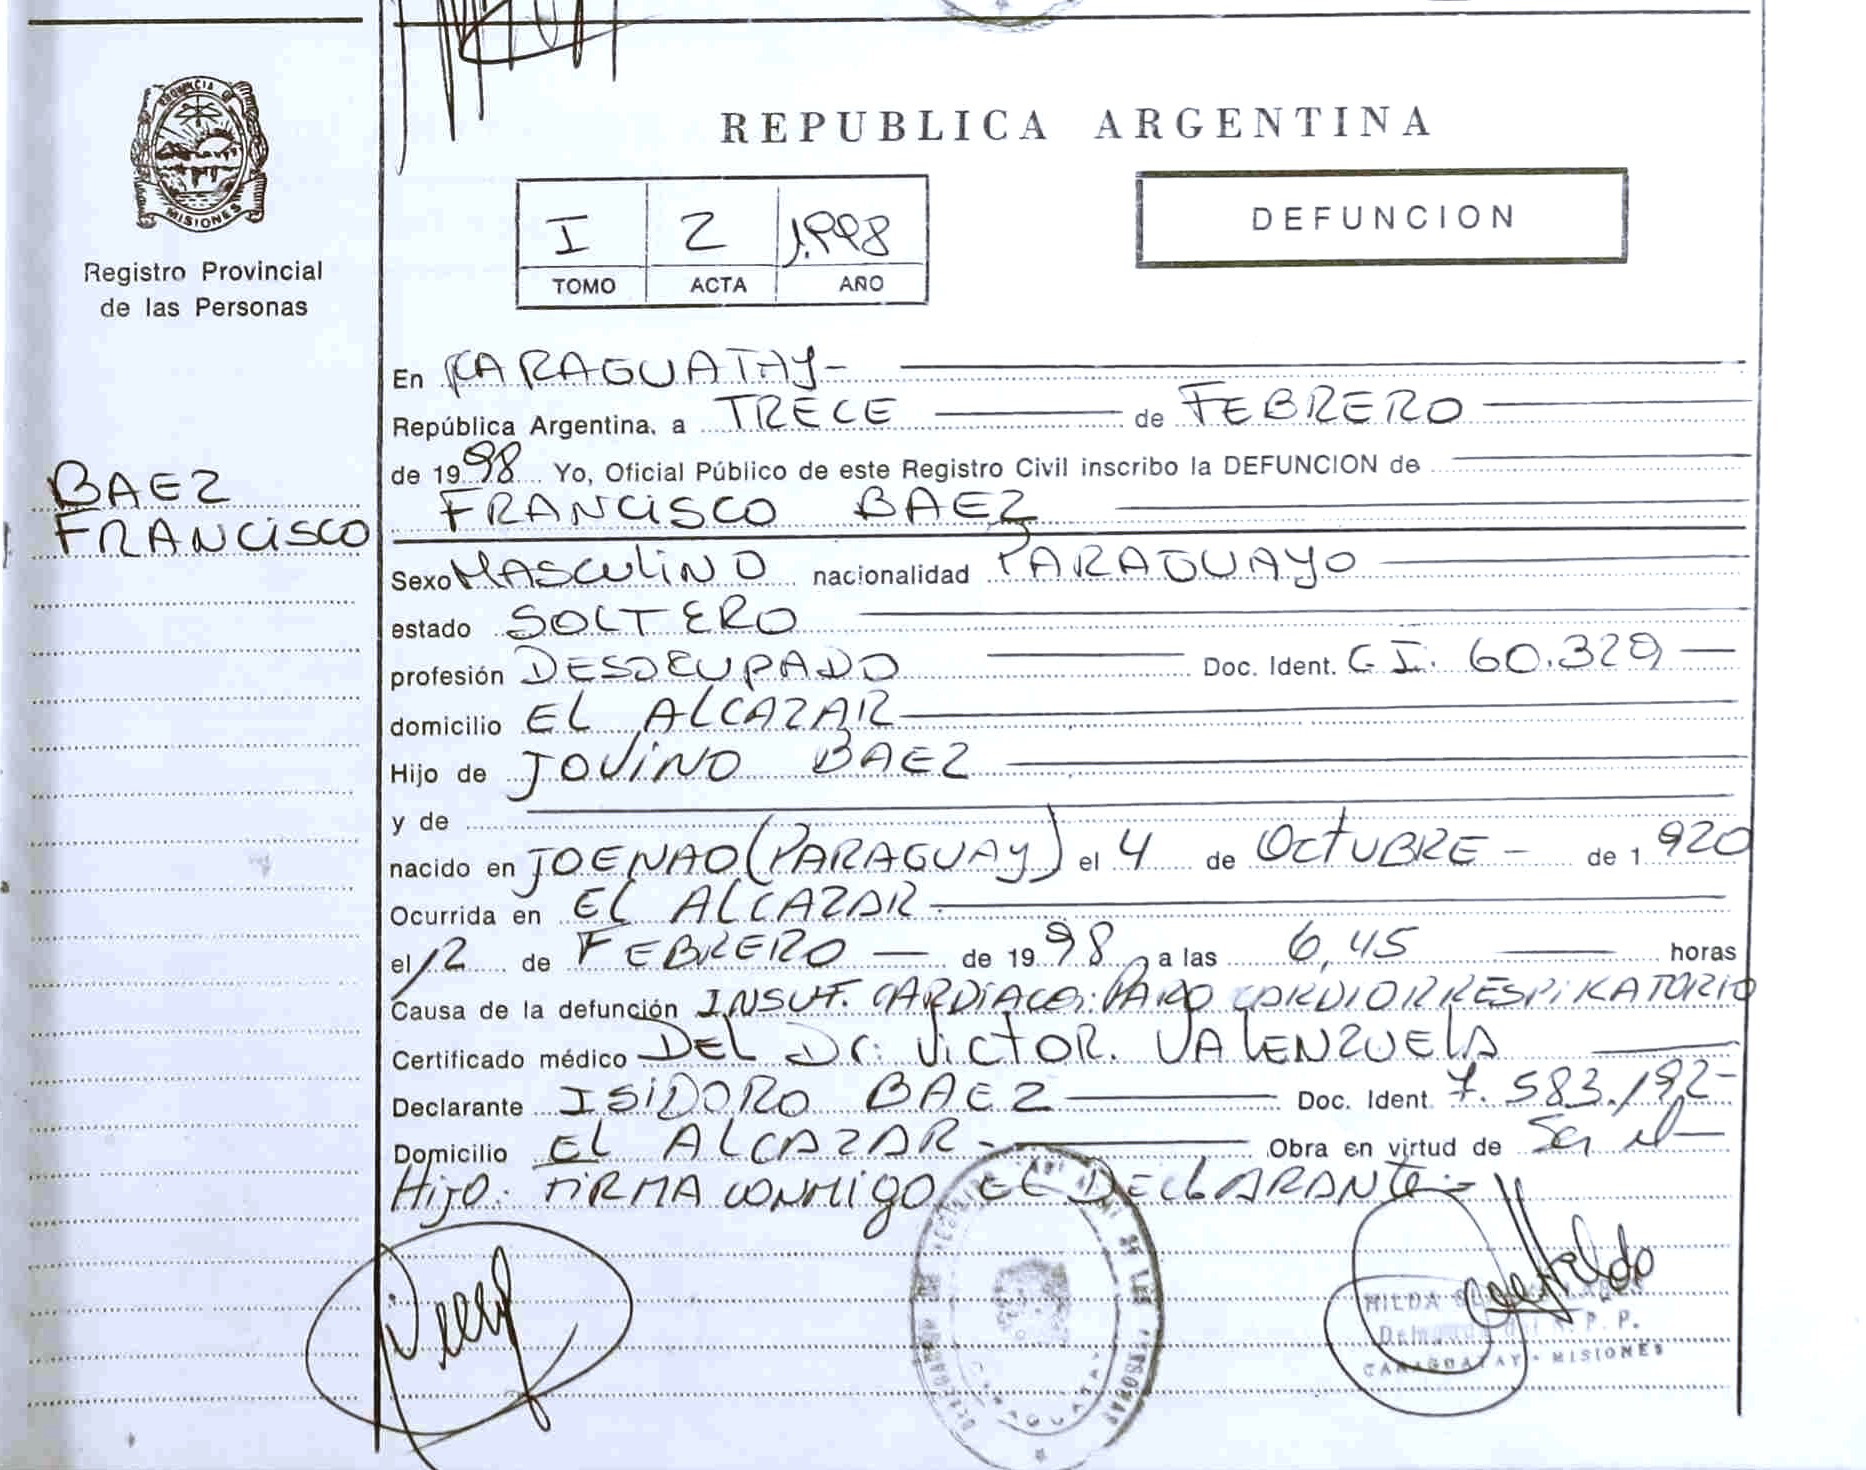 PROVINCIA DE
MISIONES
Registro Provincial
de las Personas
BAEZ
FRANCISCO
REPUBLICA ARGENTINA
I 2 1.998
TOMO ACTA AÑO
DEFUNCION
En CARAGUATAY-
República Argentina, a TRECE de FEBRERO
de 1998 Yo, Oficial Público de este Registro Civil inscribo la DEFUNCION de
FRANCISCO BAEZ
Sexo MASCULINO nacionalidad PARAGUAYO
estado SOLTERO
profesión DESOCUPADO Doc. Ident. C.I. 60.329
domicilio EL ALCAZAR
Hijo de JOVINO BAEZ
y de
nacido en JOENAO (PARAGUAY) el 4 de OCTUBRE - de 1920
Ocurrida en EL ALCAZAR
el 12 de FEBRERO de 1998 a las 6,45 horas
Causa de la defunción INSUF. CARDIACA: PARO CARDIORRESPIRATORIO
Certificado médico DEL Dr. VICTOR. VALENZUELA
Declarante ISIDORO BAEZ Doc. Ident. 7.583.192-
Domicilio EL ALCAZAR- Obra en virtud de Ser el
HIJO. FIRMA CONMIGO EL DECLARANTE.-
HILDA
CARAGUATAY - MISIONES